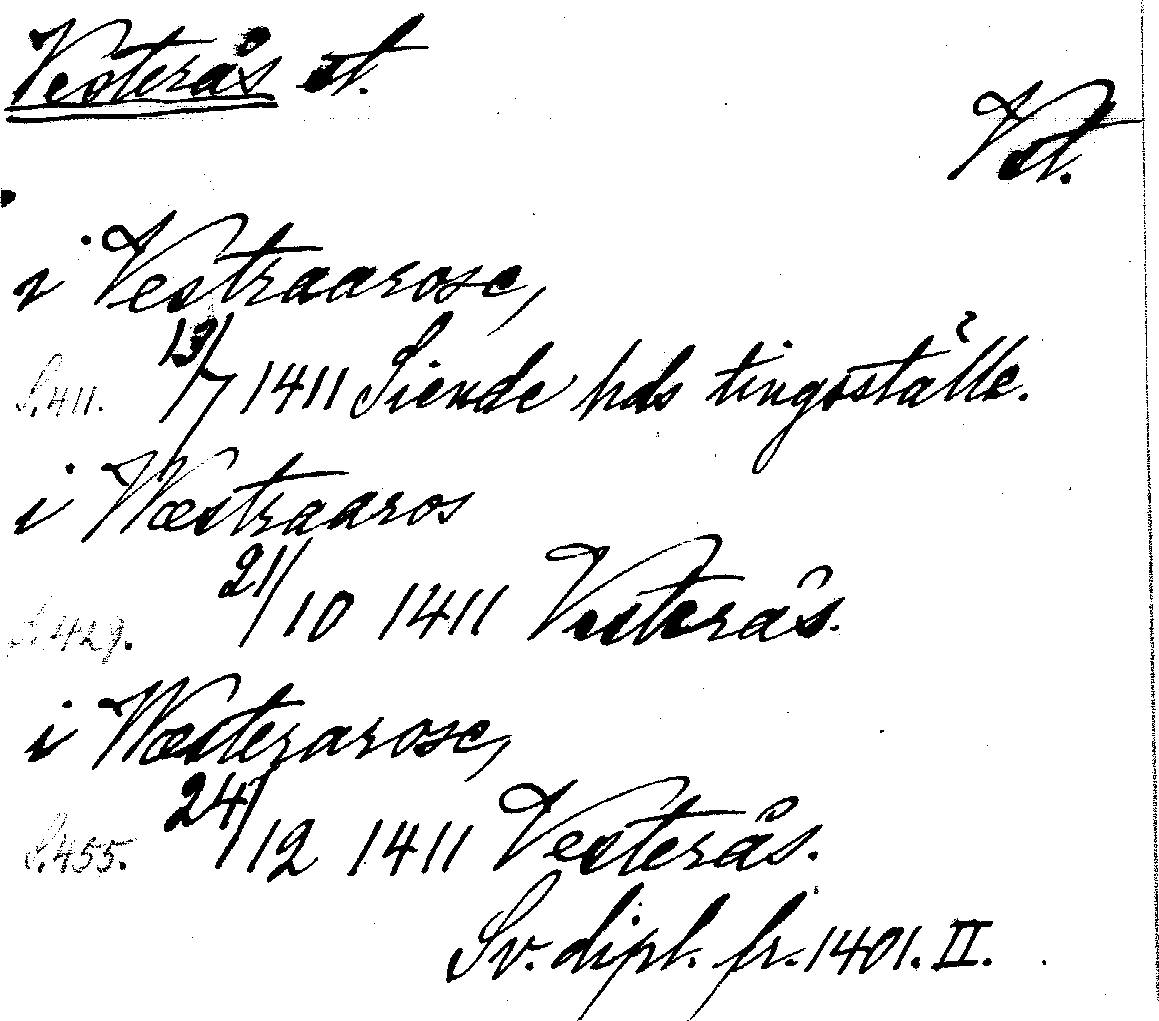 Vesterås st.
Vstl.
i Vestraarose,
S.411. 13/7 1411 Siende hds tingsställe.
i Wæstraaros
S.429. 21/10 1411 Vesterås.
i Wæsterarose,
S.455. 24/12 1411 Vesterås.
Sv. dipl. fr. 1401. II.